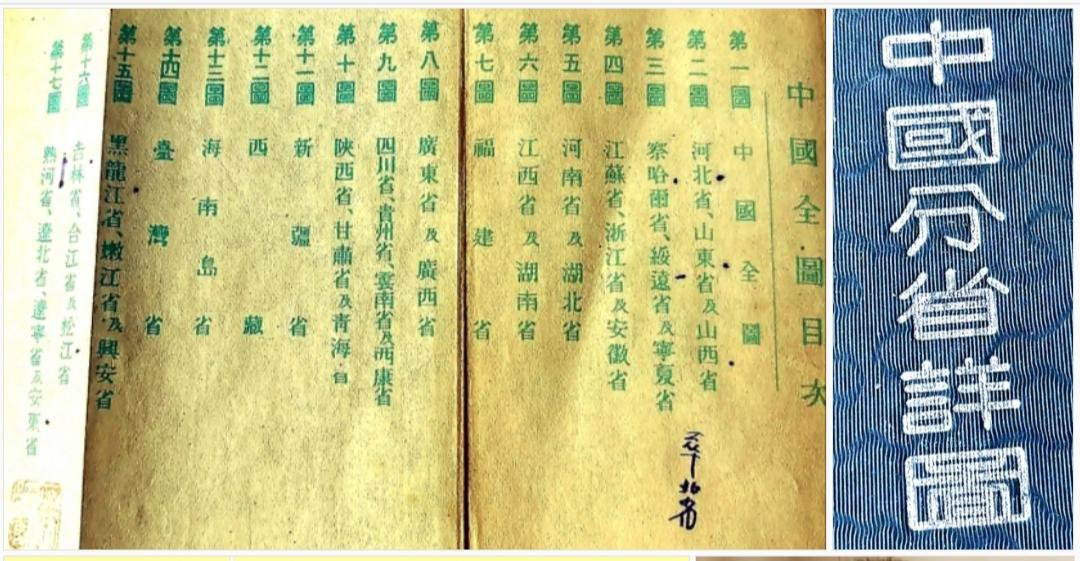 中國全圖目次
第一圖 中國全圖
第二圖 河北省、山東省及山西省
第三圖 察哈爾省、綏遠省及寧夏省
第四圖 江蘇省、浙江省及安徽省
第五圖 河南省及湖北省
第六圖 江西省及湖南省
第七圖 福建省
第八圖 廣東省及廣西省
第九圖 四川省、貴州省、雲南省及西康省
第十圖 陝西省、甘肅省及青海省
第十一圖 新疆省
第十二圖 西藏
第十三圖 海南島省
第十四圖 臺灣省
第十五圖 黑龍江省、嫩江省及興安省
第十六圖 吉林省、合江省及松江省
第十七圖 熱河省、遼北省、遼寧省及安東省
中國分省詳圖